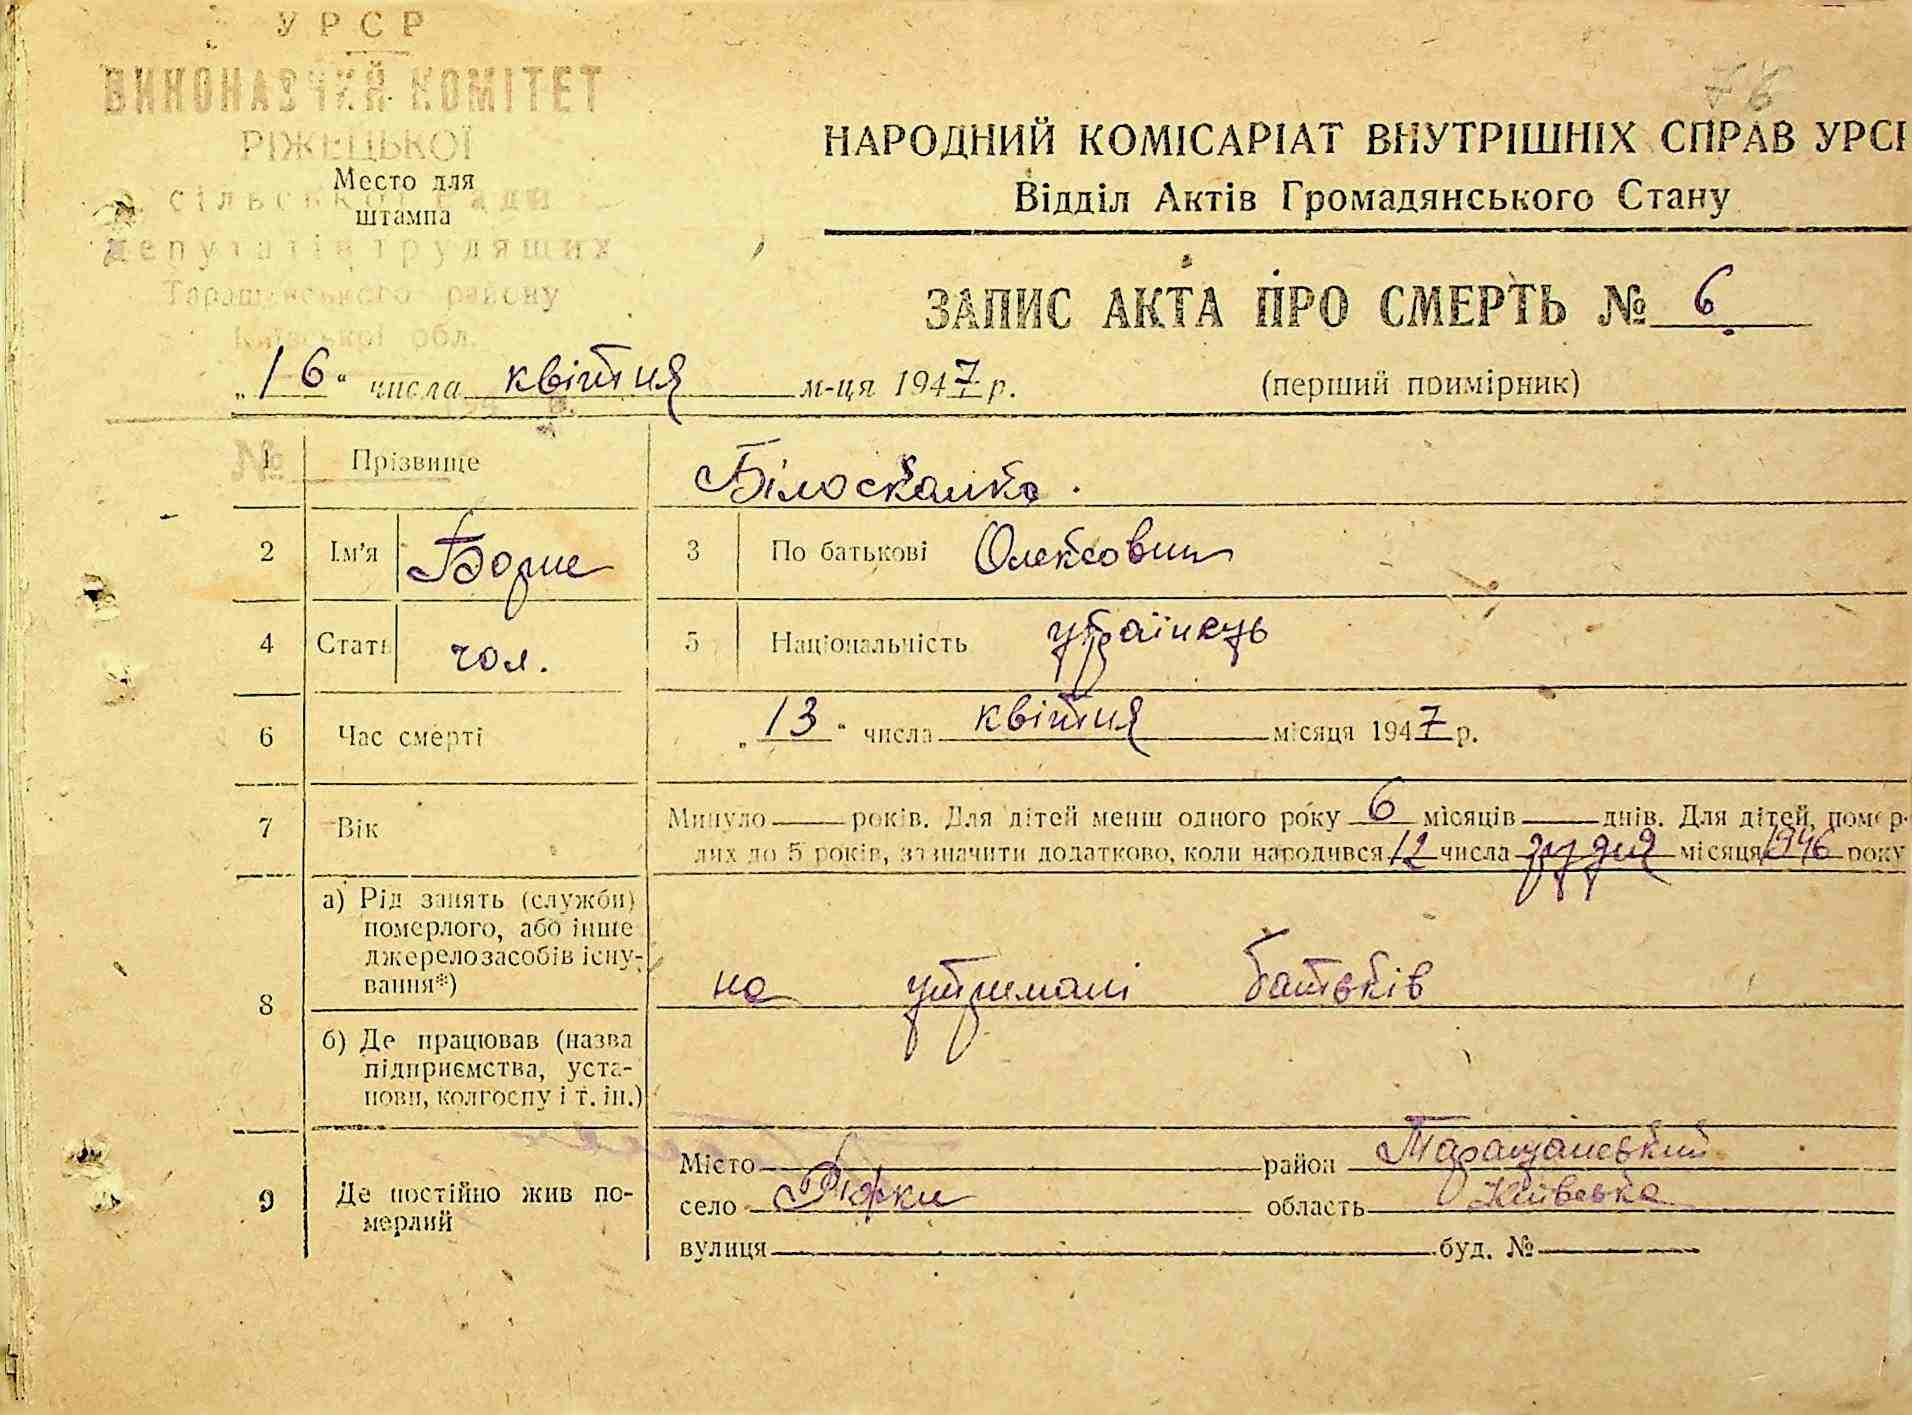 76
УРСР
ВИКОНАВЧИЙ КОМІТЕТ
РІЖЕЦЬКОЇ
сільської ради
депутатів трудящих
Таращанського району
Київської обл.
Место для
штампа
НАРОДНИЙ КОМІСАРІАТ ВНУТРІШНІХ СПРАВ УРСР
Відділ Актів Громадянського Стану
ЗАПИС АКТА ПРО СМЕРТЬ № 6
„16“ числа квітня м-ця 1947 р.
(перший примірник)
№
1 Прізвище Білоскалко.
2 Ім'я Борис 3 По батькові Олексович
4 Стать чол. 5 Національність українець
6 Час смерті „13“ числа квітня місяця 1947 р.
7 Вік Минуло — років. Для дітей менш одного року 6 місяців — днів. Для дітей, помер-
лих до 5 років, зазначити додатково, коли народився 12 числа грудня місяця 1946 року
8 а) Рід занять (служби)
померлого, або інше
джерело засобів існу-
вання*) на утримані батьків
б) Де працював (назва
підприємства, уста-
нови, колгоспу і т. ін.)
9 Де постійно жив по-
мерлий
Місто район Таращанський
село Ріжки область Київська
вулиця буд. №